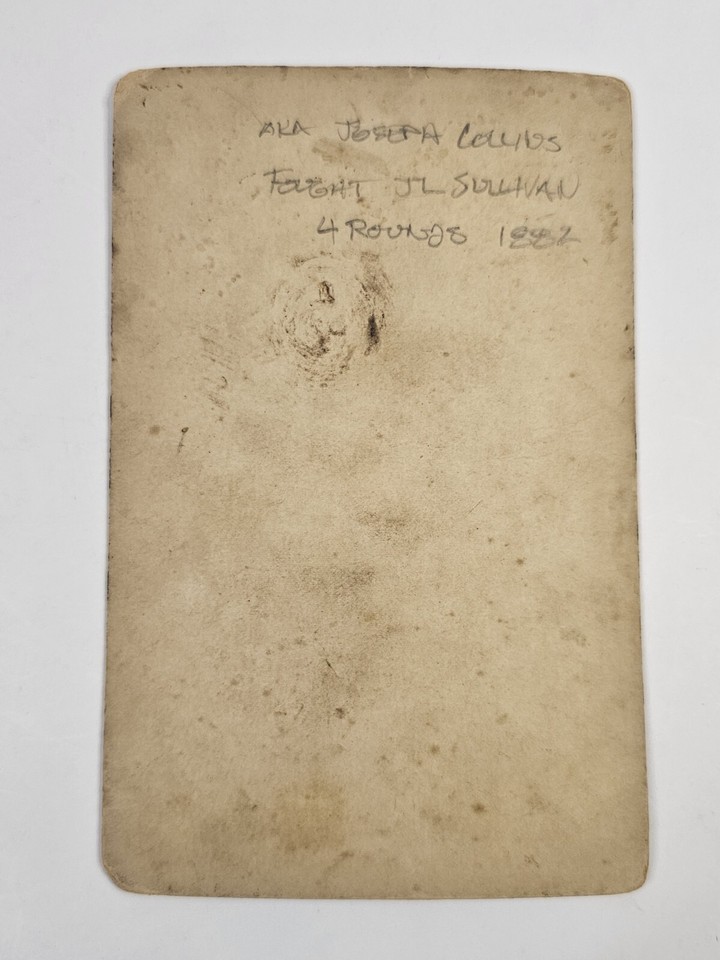 AKA JOSEPH COLLINS
FOUGHT JL SULLIVAN
4 ROUNDS 1882